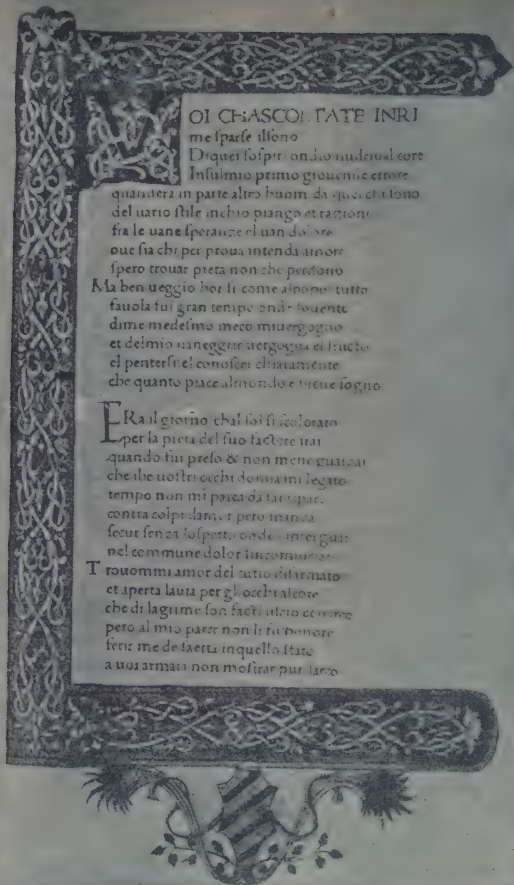 OI CHASCOLTATE INRI
me sparse ilsono
Di quei sospiri ondio nudriual core
Insulmio primo giouenile errore
quandera in parte altro huom da quel chi sono
del uario stile inchio piango et ragione
fra le uane speranze el uan dolore
oue sia chi per proua intenda amore
spero trouar pieta non che perdono
Ma ben ueggio hor si come alpopol tutto
fauola fui gran tempo onde souente
dime medesmo meco miuergogno
et delmio uaneggiar uergogna el fructo
el pentersi el conoscer chiaramente
che quanto piace almondo e breue sogno
ERa il giorno chal sol si scolorato
per la pieta del suo factore irai
quando fui preso & non mene guardai
che ibe uostri occhi donna mi legato
tempo non mi parea da far
contra colpi damor pero mandai
secur senza sospetto onde i miei guai
nel commune dolor
Trouommi amor del tutto disarmato
et aperta lauia per gli occhi alcore
che di lagrime son facti
pero al mio parer non li fu honore
ferir me de saetta inquello stato
a uoi armata non mostrar pur larco